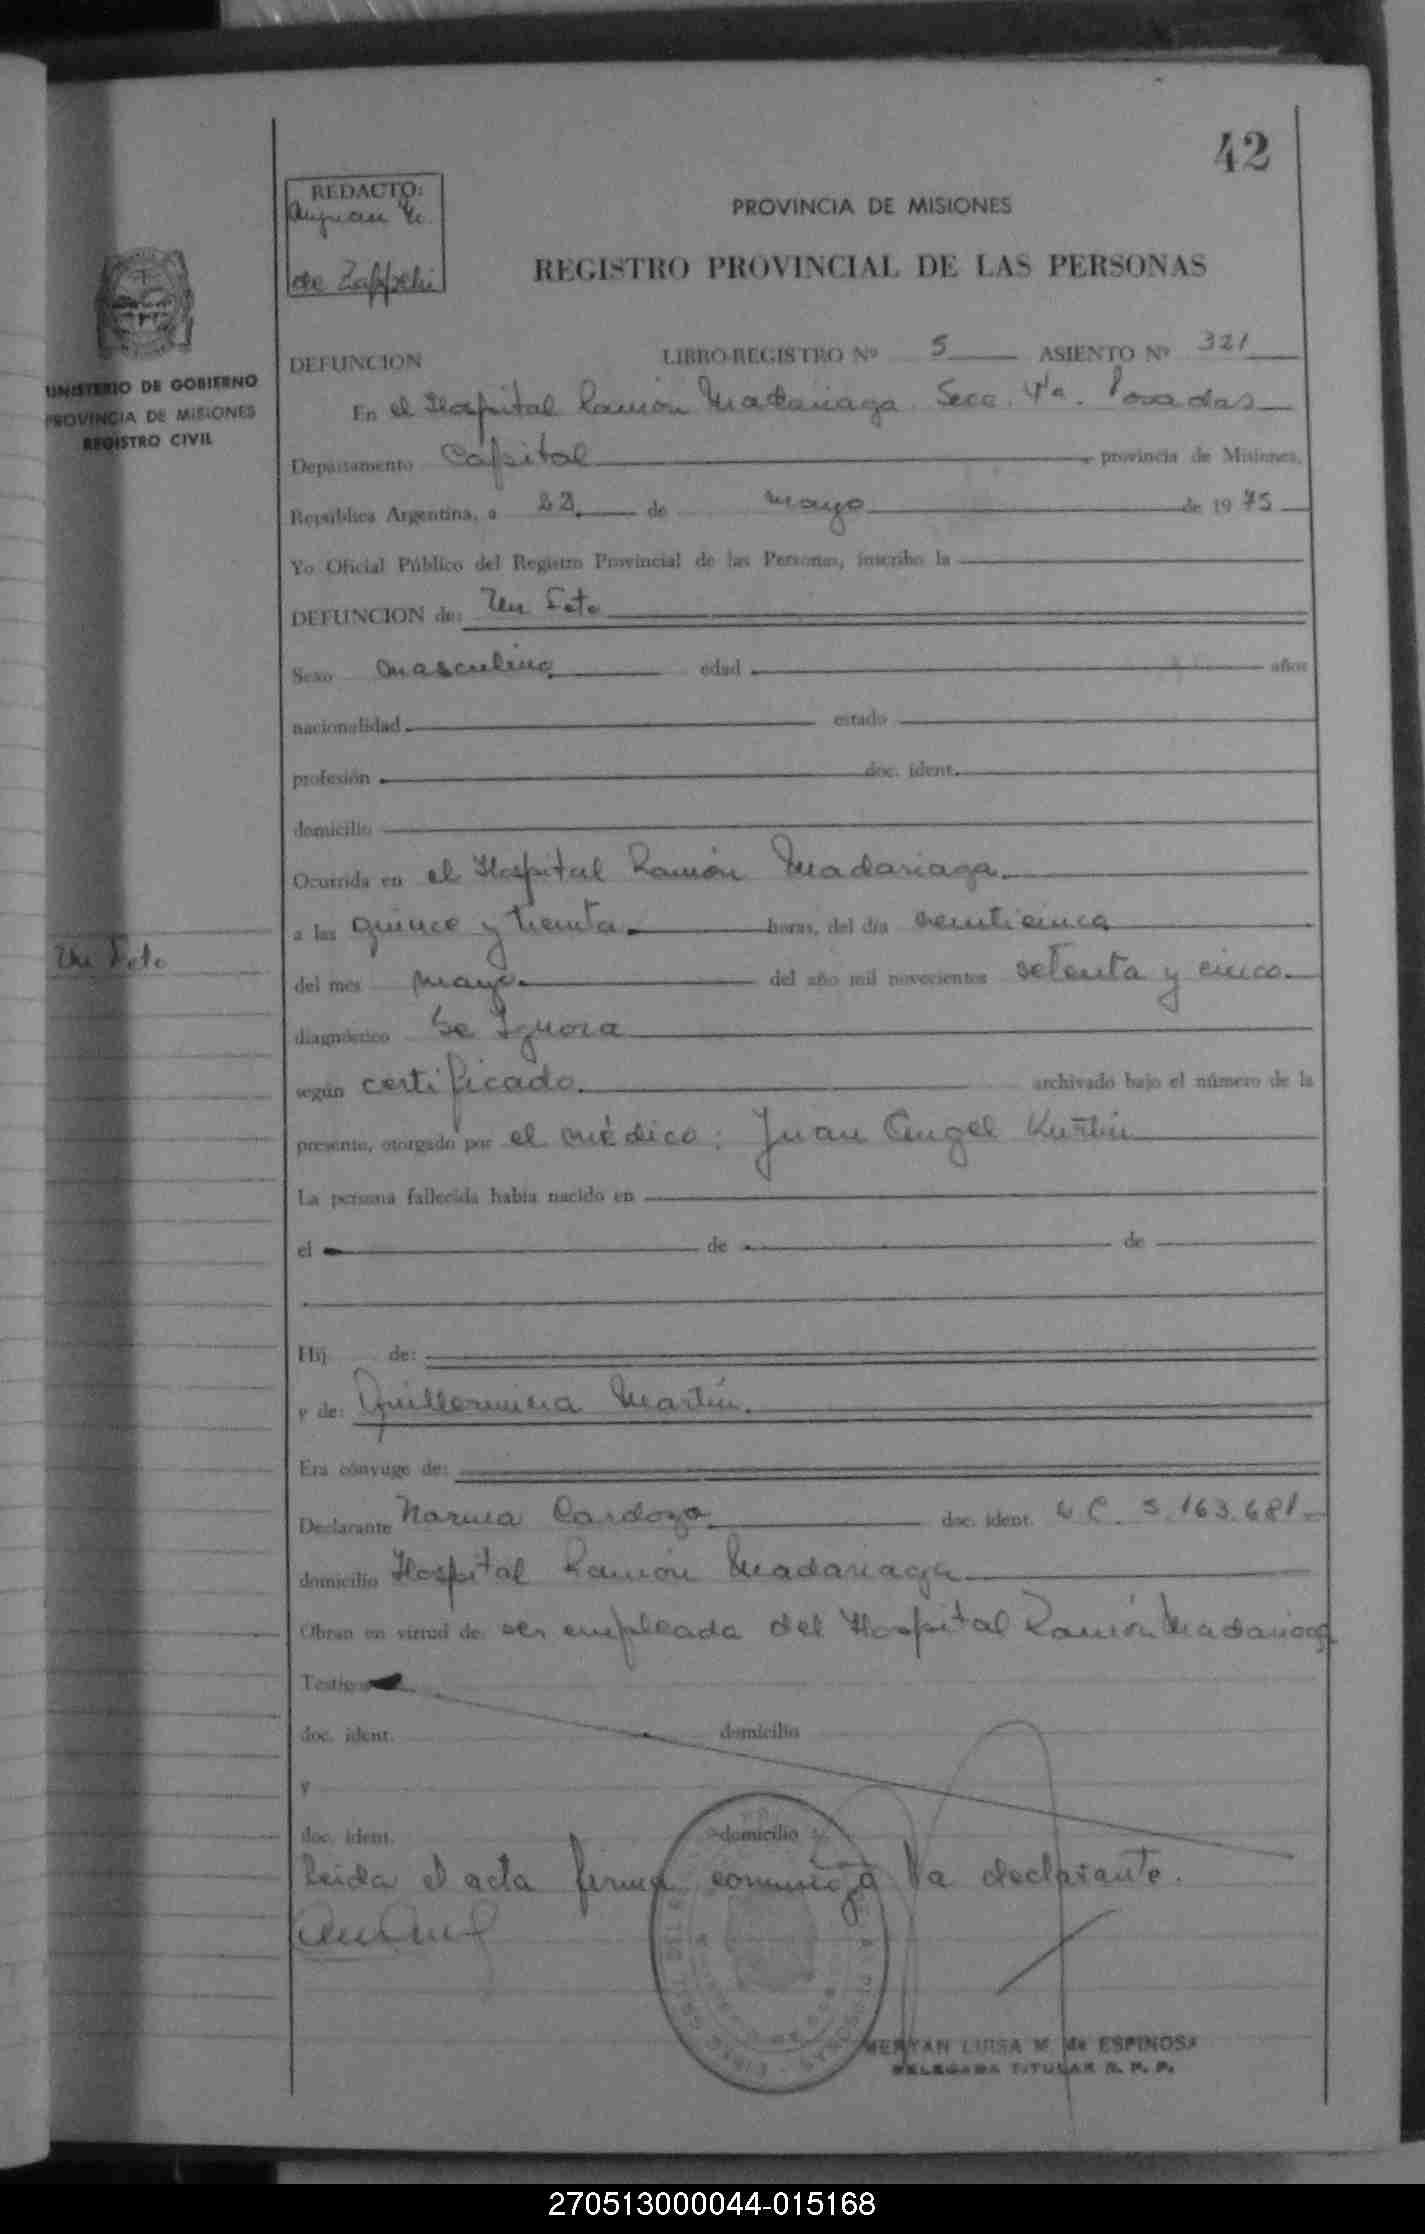 42
REDACTO:
de Zappelli
PROVINCIA DE MISIONES
REGISTRO PROVINCIAL DE LAS PERSONAS
MINISTERIO DE GOBIERNO
PROVINCIA DE MISIONES
REGISTRO CIVIL
DEFUNCION LIBRO-REGISTRO Nº 5 ASIENTO Nº 321
En el Hospital Ramón Madariaga. Secc. 4ta. Posadas
Departamento Capital provincia de Misiones,
República Argentina, a de mayo de 1975
Yo Oficial Público del Registro Provincial de las Personas, inscribo la
DEFUNCION de: Un Feto
Sexo masculino edad años
nacionalidad estado
profesión doc. ident.
domicilio
Ocurrida en el Hospital Ramón Madariaga.
a las quince y treinta horas, del día veinticinco
Un Feto
del mes mayo. del año mil novecientos setenta y cinco.
diagnóstico Se Ignora
según certificado. archivado bajo el número de la
presente, otorgado por el médico: Juan Angel
La persona fallecida había nacido en
el de de
Hij de:
y de: Guillermina Martín.
Era cónyuge de:
Declarante Norma Cardozo doc. ident. L C. 5.163.681.
domicilio Hospital Ramón Madariaga
Obran en virtud de: ser empleada del Hospital Ramón Madariaga
Testigos
doc. ident. domicilio
y
doc. ident. domicilio
Leida el acta firma conmigo la declarante.
MERYAN LUISA M. de ESPINOSA
DELEGADA TITULAR R. P. P.
270513000044-015168